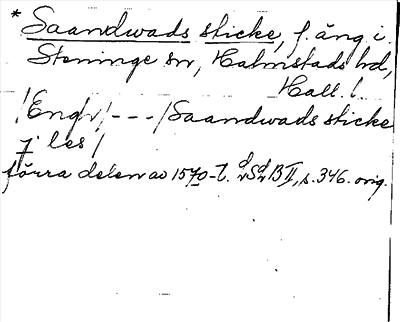 * Saandwads sticke, f. äng i
Steninge sn, Halmstads hd,
Hall. l.
/Engh/ - - - / Saandwads sticke
j les /
förra delen av 1570-t. SdB II, s. 346. orig.